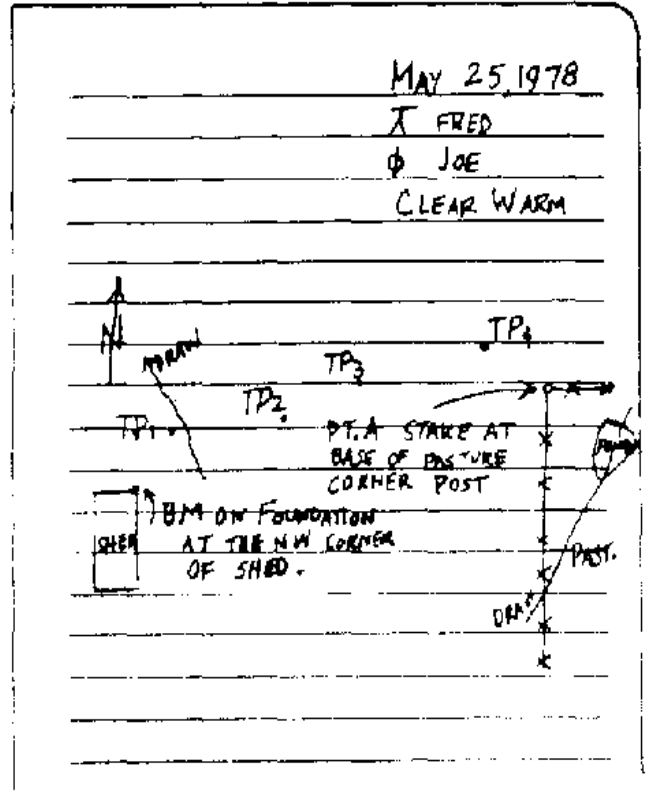 MAY 25, 1978
⊼ FRED
ϕ JOE
CLEAR WARM
N
DRAW
TP4
TP3
TP2
TP1
PT. A STAKE AT
BASE OF PASTURE
CORNER POST
BM ON FOUNDATION
AT THE NW CORNER
OF SHED.
SHED
PAST.
DRAW